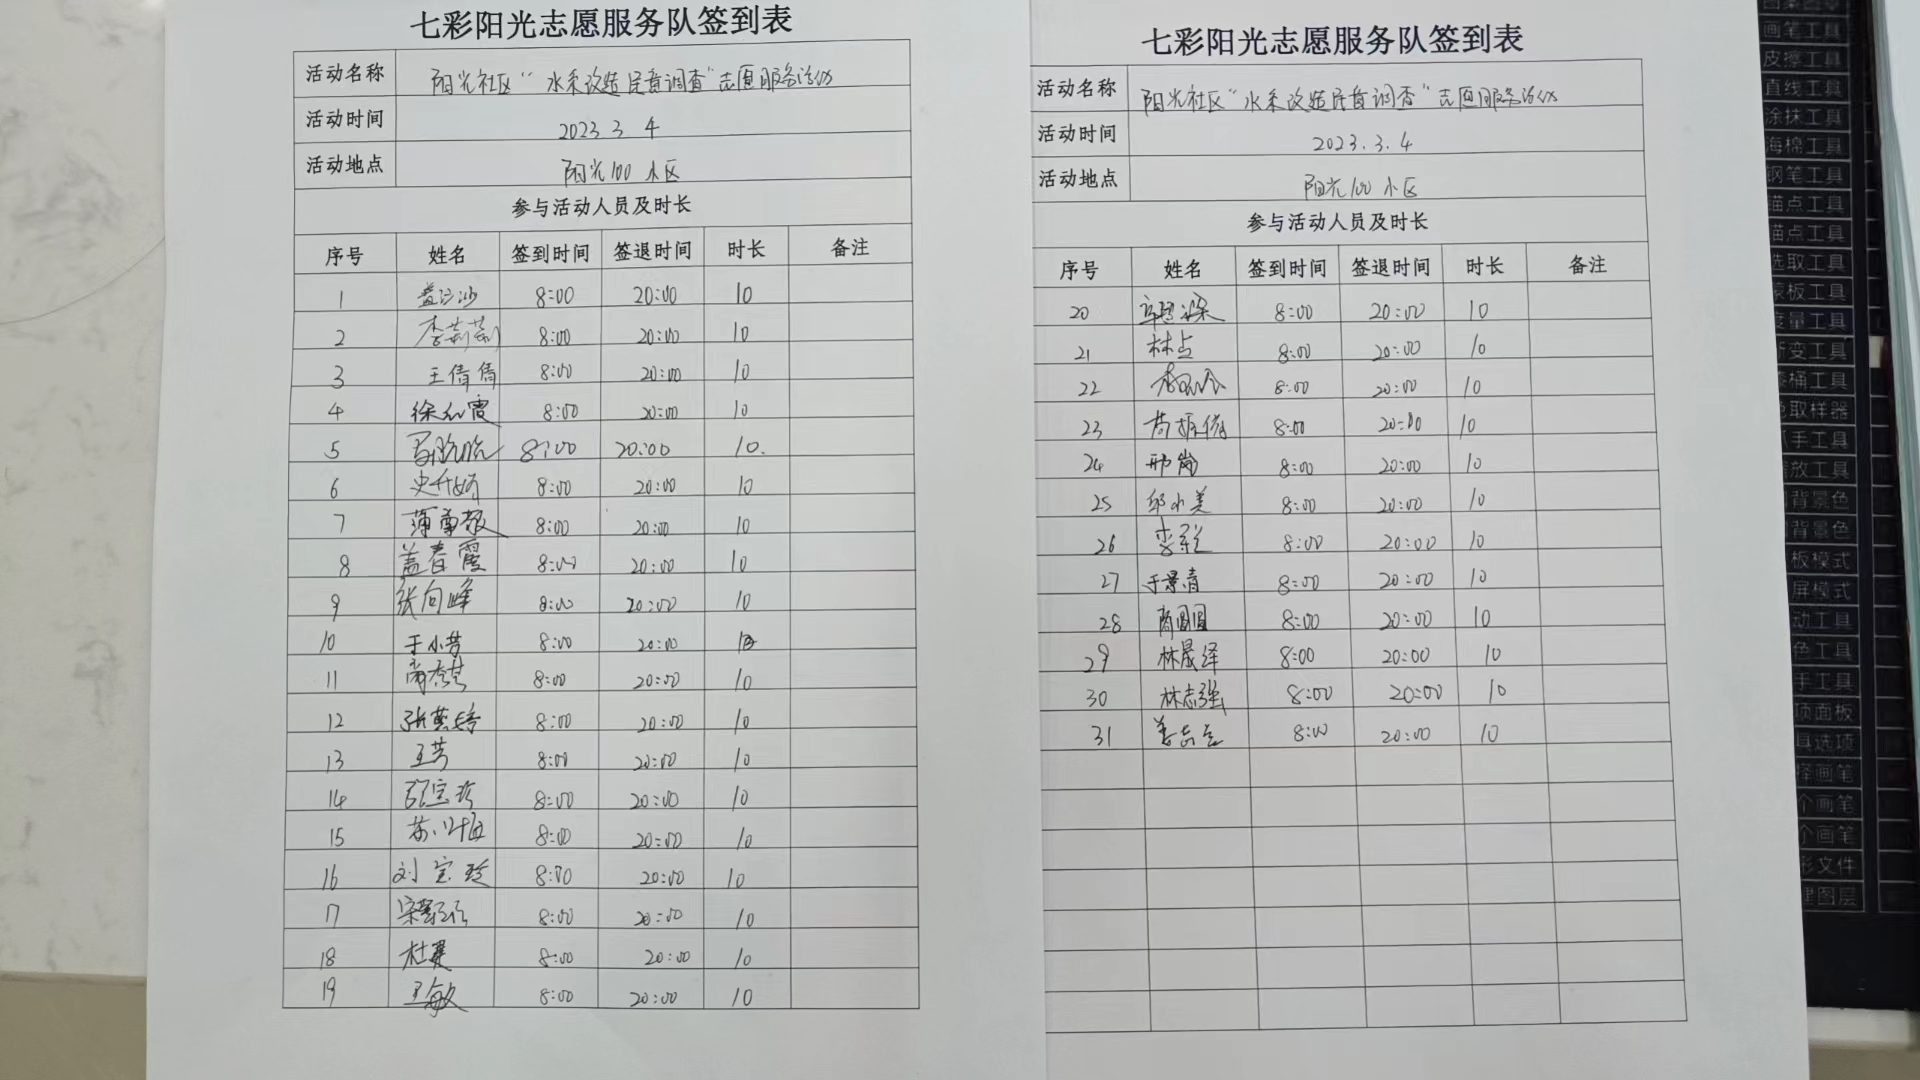 七彩阳光志愿服务队签到表
活动名称 阳光社区“水系改造民意调查”志愿服务活动
活动时间 2023.3.4
活动地点 阳光100小区
参与活动人员及时长
序号 姓名 签到时间 签退时间 时长 备注
1 8:00 20:00 10
2 李莉莉 8:00 20:00 10
3 王倩倩 8:00 20:00 10
4 徐 霞 8:00 20:00 10
5 8:00 20:00 10.
6 史 娇 8:00 20:00 10
7 8:00 20:00 10
8 盖春霞 8:00 20:00 10
9 张向峰 8:00 20:00 10
10 于小芳 8:00 20:00
11 8:00 20:00 10
12 张 婷 8:00 20:00 10
13 王芳 8:00 20:00 10
14 宝珍 8:00 20:00 10
15 8:00 20:00 10
16 刘宝玲 8:00 20:00 10
17 宋 8:00 20:00 10
18 杜 8:00 20:00 10
19 王敏 8:00 20:00 10
七彩阳光志愿服务队签到表
活动名称 阳光社区“水系改造民意调查”志愿服务活动
活动时间 2023.3.4
活动地点 阳光100小区
参与活动人员及时长
序号 姓名 签到时间 签退时间 时长 备注
20 8:00 20:00 10
21 林点 8:00 20:00 10
22 8:00 20:00 10
23 8:00 20:00 10
24 邢岗 8:00 20:00 10
25 邱小美 8:00 20:00 10
26 李 8:00 20:00 10
27 于景青 8:00 20:00 10
28 商圆圆 8:00 20:00 10
29 林晟泽 8:00 20:00 10
30 林志强 8:00 20:00 10
31 8:00 20:00 10
画笔工具
皮擦工具
直线工具
涂抹工具
海棉工具
钢笔工具
锚点工具
锚点工具
选取工具
蒙板工具
度量工具
渐变工具
漆桶工具
色取样器
抓手工具
缩放工具
背景色
背景色
板模式
屏模式
动工具
色工具
手工具
顶面板
具选项
择画笔
个画笔
个画笔
形文件
建图层